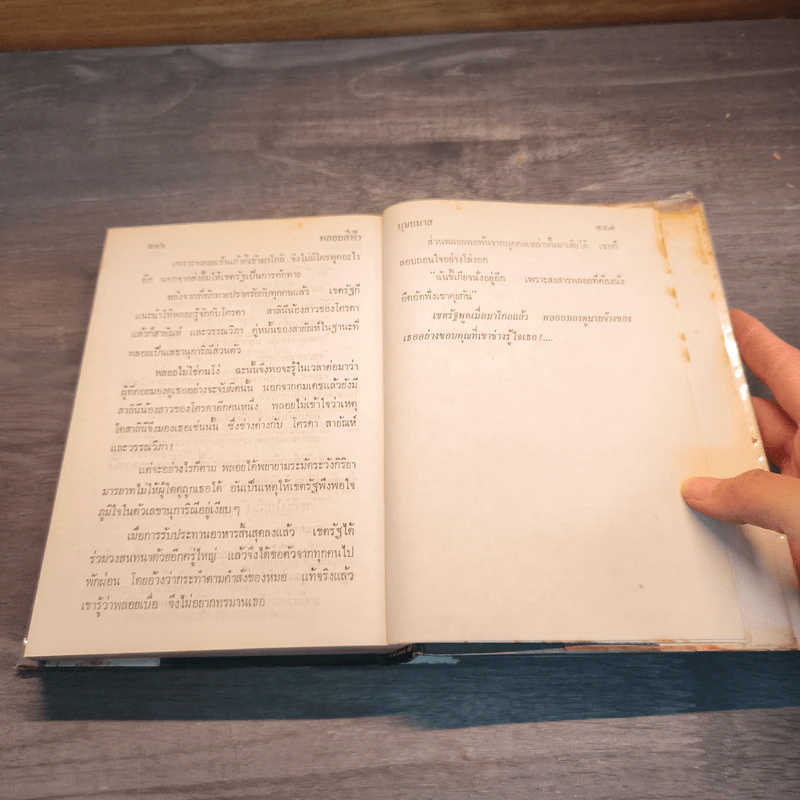 พลอยสีฟ้า
เพราะพลอยเขินเก้าที่เข้ามาใกล้ จึงไม่มีใครพูดอะไร
อีก นอกจากส่งยิ้มให้เขตรัฐเป็นการทักทาย
หลังจากที่ทักทายปราศรัยกับทุกคนแล้ว เขตรัฐก็
แนะนำให้พลอยรู้จักกับโครดา สาลินีน้องสาวของโครดา
แล้วก็สายัณห์ และวรรณวิภา คู่หมั้นของสายัณห์ในฐานะที่
พลอยเป็นเลขานุการิณีส่วนตัว
พลอยไม่ใช่คนโง่ ฉะนั้นจึงพอจะรู้ในเวลาต่อมาว่า
ผู้ที่คอยมองดูเธออย่างจะจับผิดนั้น นอกจากคมเดชแล้วยังมี
สาลินีน้องสาวของโครดาอีกคนหนึ่ง พลอยไม่เข้าใจว่าเหตุ
ใดสาลินีจึงมองเธอเช่นนั้น ซึ่งช่างต่างกับ โครดา สายัณห์
และวรรณวิภา!
แต่จะอย่างไรก็ตาม พลอยได้พยายามระมัดระวังกิริยา
มารยาทไม่ให้ผู้ใดดูถูกเธอได้ อันเป็นเหตุให้เขตรัฐพึงพอใจ
ภูมิใจในตัวเลขานุการิณีอยู่เงียบๆ
เมื่อการรับประทานอาหารสิ้นสุดลงแล้ว เขตรัฐได้
ร่วมวงสนทนาด้วยอีกครู่ใหญ่ แล้วจึงได้ขอตัวจากทุกคนไป
พักผ่อน โดยอ้างว่ากระทำตามคำสั่งของหมอ แท้จริงแล้ว
เขารู้ว่าพลอยเบื่อ จึงไม่อยากทรมานเธอ
บุษยมาส
ส่วนพลอยพอพ้นจากบุคคลเหล่านั้นมาเสียได้ เธอก็
ลอบถอนใจอย่างโล่งอก
“ฉันขี้เกียจนั่งอยู่อีก เพราะสงสารพลอยที่ต้องนั่ง
อึดอัดฟังเขาคุยกัน”
เขตรัฐพูดเมื่อมาไกลแล้ว พลอยมองดูนายจ้างของ
เธออย่างขอบคุณที่เขาช่างรู้ใจเธอ!....